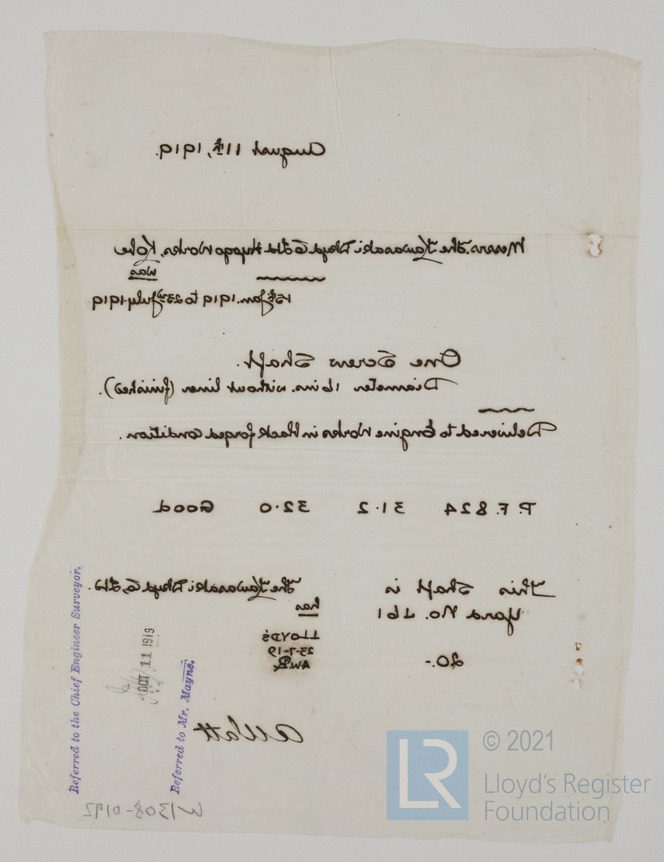 August 11th, 1919.
Messrs. The Kawasaki Dkyd Co Ltd Hyogo Works, Kobe
was
15th Jan. 1919 to 23rd July 1919
One Screw Shaft.
Diameter 16 ins. without liner (finished).
Delivered to Engine Works in black forged condition.
P.F. 824 31.2 32.0 Good
This shaft is The Kawasaki Dkyd Co Ltd.
Yard No. 461 has
LLOYD'S
23-7-19
A.W.
20.-
A Watt
Referred to the Chief Engineer Surveyor.
OCT 11 1919
Referred to Mr. Mayne.
W1308-0192
LR
© 2021
Lloyd's Register
Foundation